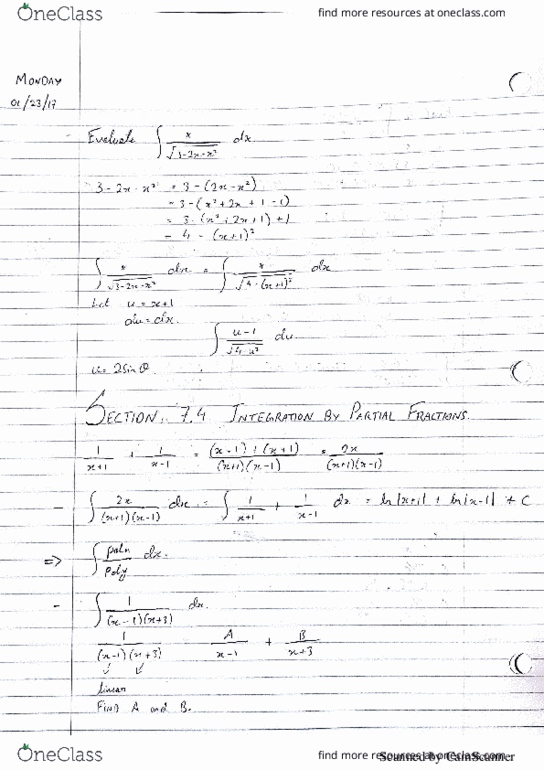 OneClass
find more resources at oneclass.com
MONDAY
01/23/17
- Evaluate ∫ x / √(3-2x-x²) dx
3-2x-x² = 3-(2x-x²)
= 3-(x²+2x+1-1)
= 3-(x²+2x+1)+1
= 4-(x+1)²
∫ x / √(3-2x-x²) dx = ∫ x / √(4-(x+1)²) dx
Let u = x+1
du = dx.
∫ (u-1) / √(4-u²) du
u = 2sin θ
SECTION. 7.4 INTEGRATION BY PARTIAL FRACTIONS.
1/(x+1) + 1/(x-1) = ((x-1)+(x+1)) / ((x+1)(x-1)) = 2x / ((x+1)(x-1))
- ∫ 2x / ((x+1)(x-1)) dx = ∫ 1/(x+1) + 1/(x-1) dx = ln|x+1| + ln|x-1| + C
⇒ ∫ poly/poly dx.
- ∫ 1 / ((x-1)(x+3)) dx.
1 / ((x-1)(x+3)) = A/(x-1) + B/(x+3)
linear
FIND A and B.
OneClass
find more resources at oneclass.com
Scanned by CamScanner